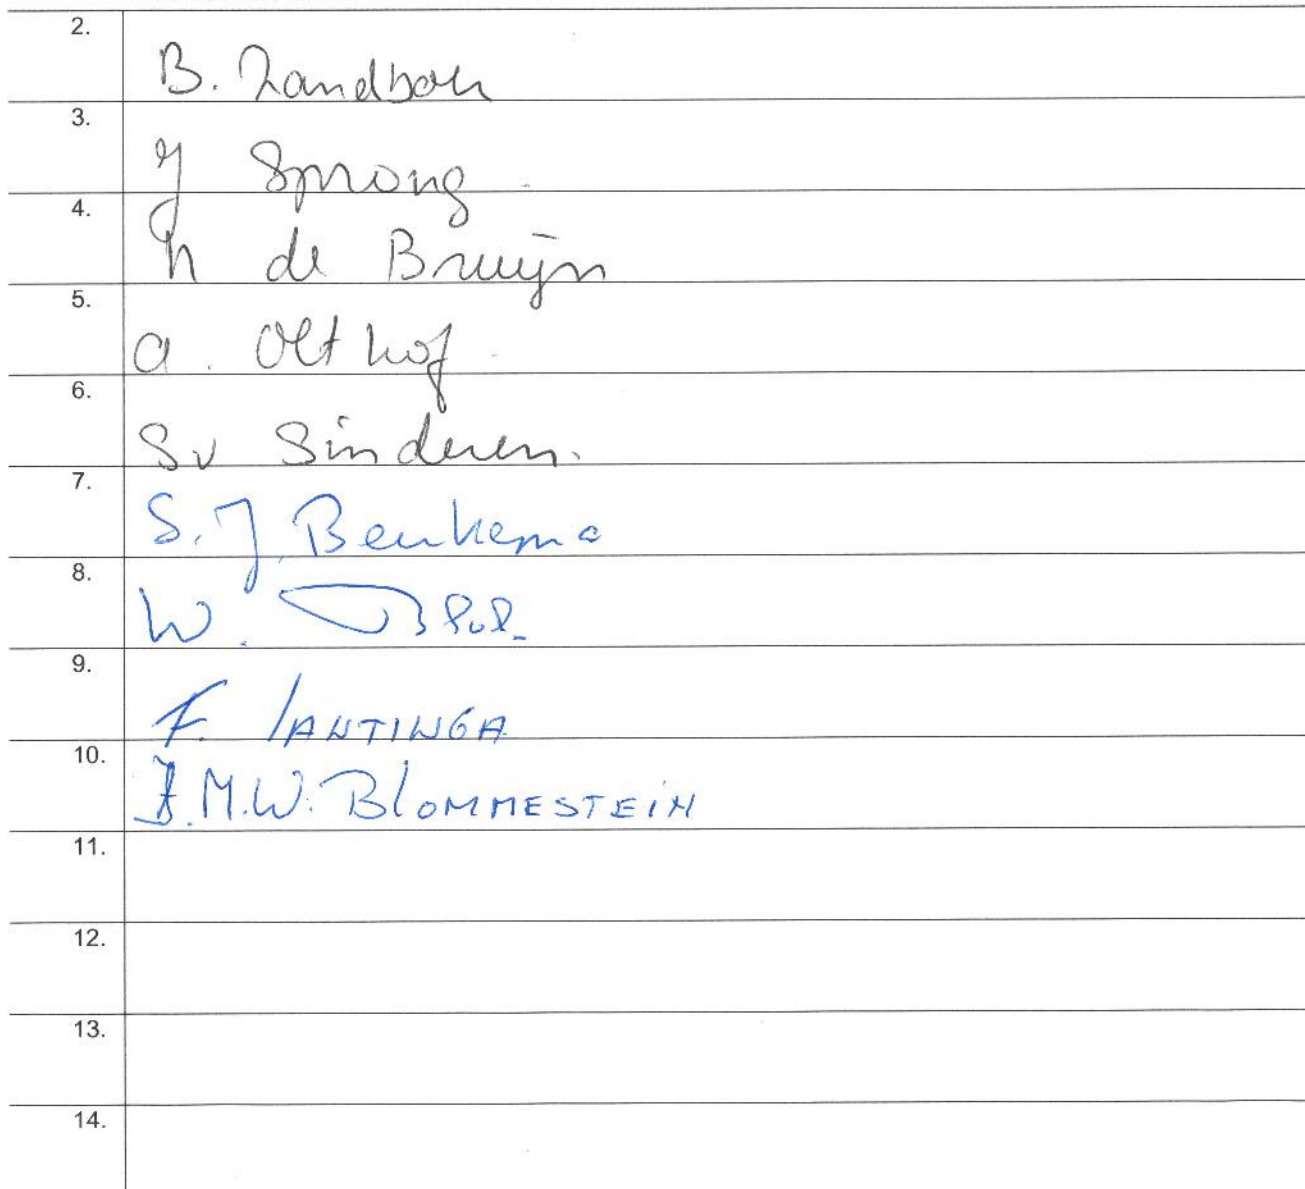 2. B. Zandbok
3. J Sprong
4. h de Bruijn
5. a. Olthof
6. Sv Sinderen.
7. S.J. Beukema
8. W.
9. F. IANTINGA
10. J.M.W. BLOMMESTEIN
11.
12.
13.
14.